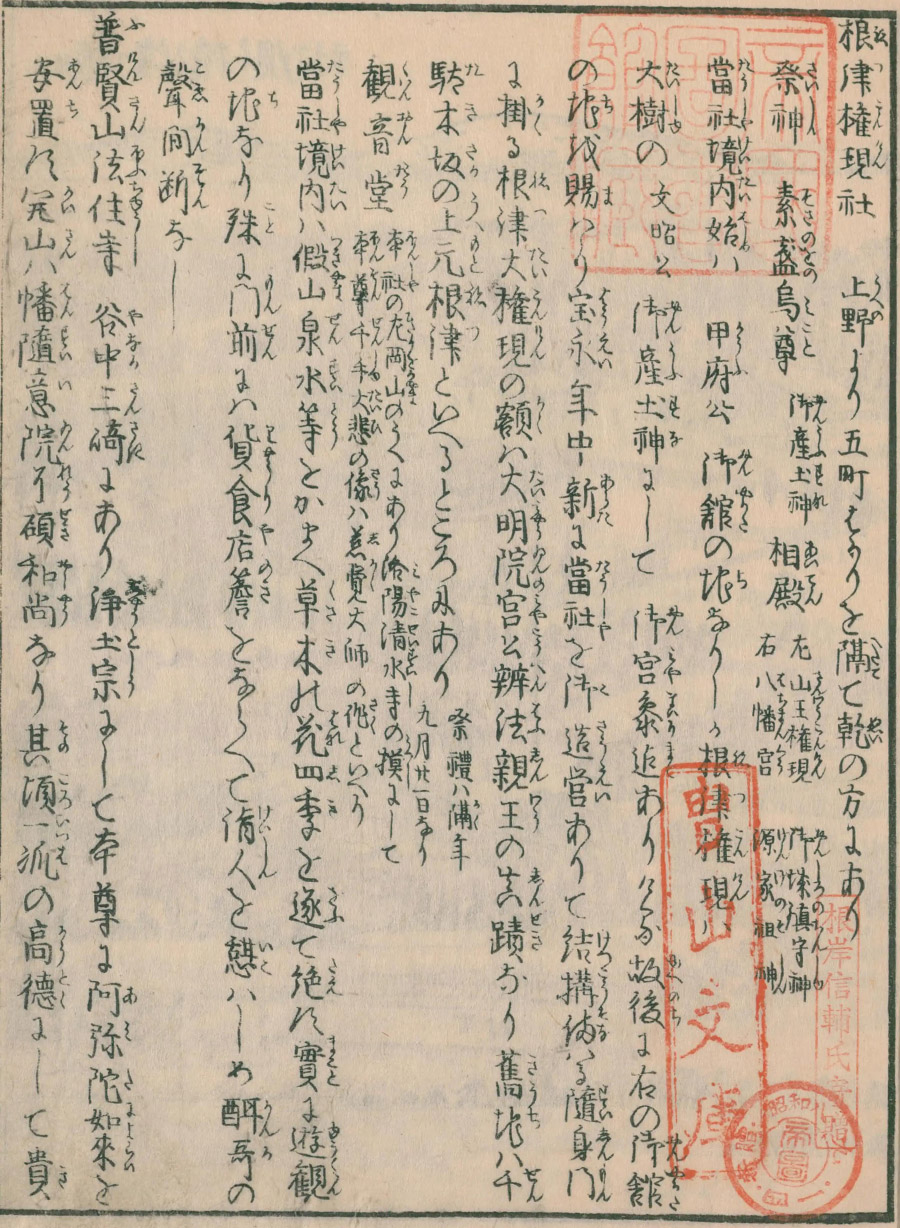 根津権現社　上野より五町はかりを隔て乾の方にあり
祭神　素盞烏尊　御産土神　相殿　左　山王権現　御城鎮守神　右　八幡宮　源家祖神
當社境内始ハ　甲府公　御舘の地なりしか根津権現ハ
大樹の　文昭公　御産土神にして　御宮参迠ありける故後に右の御舘
の地を賜ハり宝永年中新に當社を御造営ありて結構備はる随身門
に掛る根津大権現の額ハ大明院宮公辨法親王の真蹟なり舊地ハ千
駄木坂の上元根津といへるところにあり　祭禮ハ隔年九月廿一日なり
観音堂　本社の左岡山のうへにあり洛陽清水寺の摸にして本尊千手大悲の像ハ慈覚大師の作といへり
當社境内ハ假山泉水等をかまへ草木の花四季を逐て絶す實に遊観
の地なり殊に門前にハ貨食店簷をならへて詣人を憩ハしめ酣哥の
聲間断なし
普賢山法住寺　谷中三崎にあり浄土宗にして本尊に阿弥陀如來を
安置す開山ハ幡隨意院了碩和尚なり其頃一派の高德にして貴
曺山文庫
根岸信輔氏寄贈